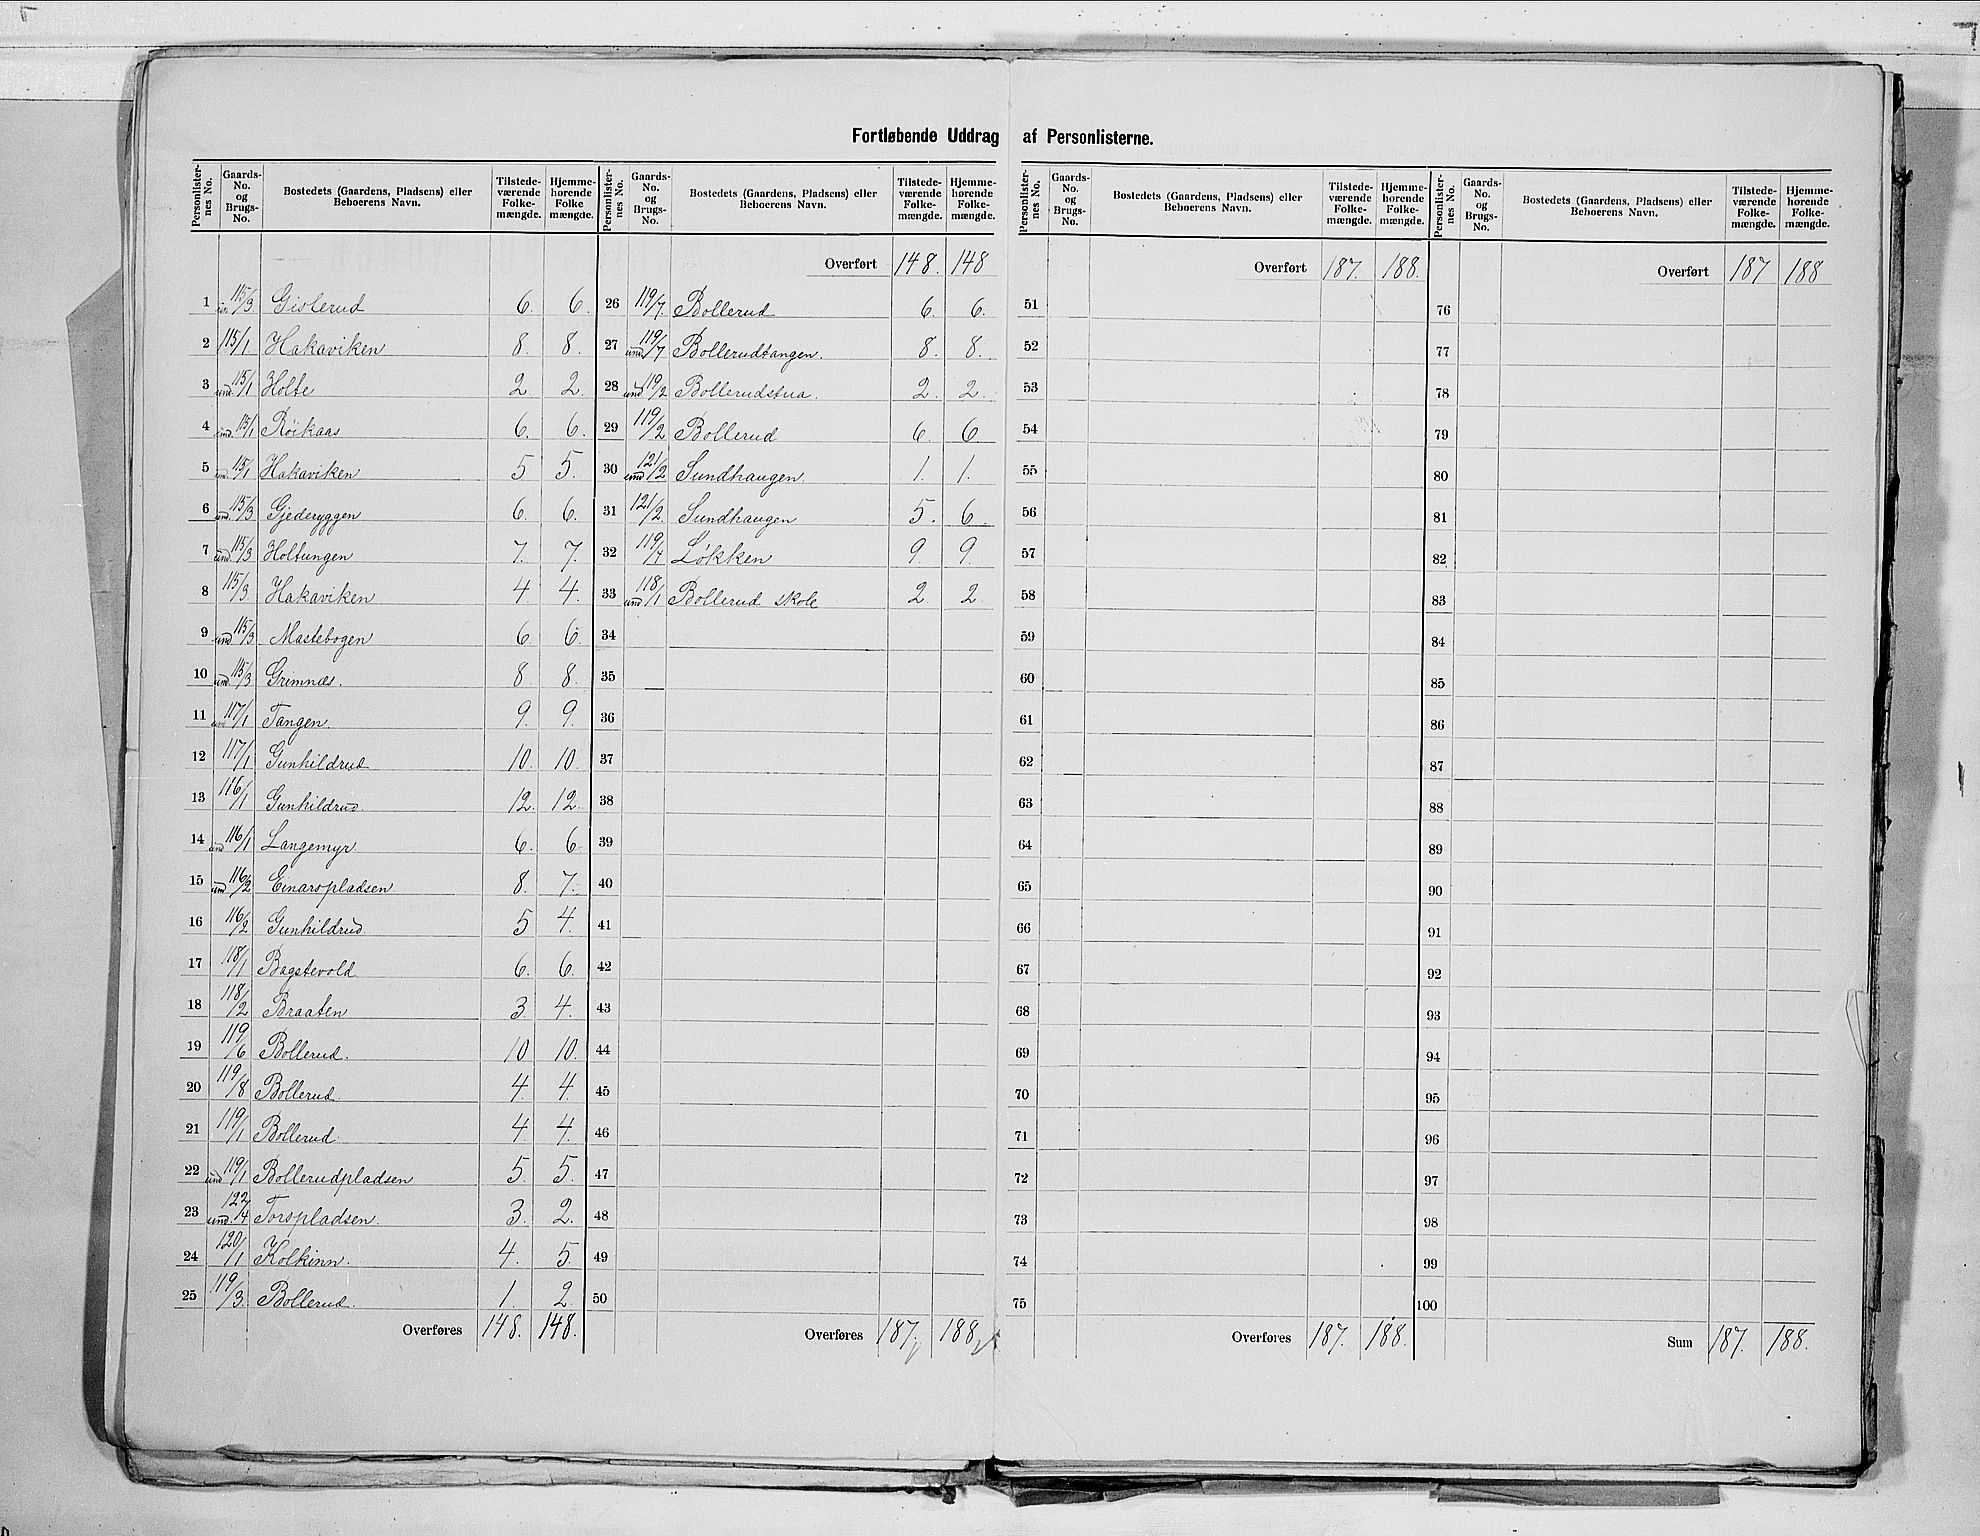 Fortløbende Uddrag af Personlisterne.
Personlister-nes No. | Gaards-No. og Brugs-No. | Bostedets (Gaardens, Pladsens) eller Beboerens Navn. | Tilstede-værende Folke-mængde. | Hjemme-hørende Folke mængde.
1 und. 115/3 Gislerud 6. 6.
2 115/1 Hakaviken 8. 8.
3 und. 115/1 Holte 2. 2.
4 und. 115/1 Röikaas 6. 6.
5 und. 115/1 Hakaviken 5 5.
6 und. 115/3 Gjederyggen 6. 6.
7 und. 115/3 Holtungen 7. 7.
8 115/3 Hakaviken 4. 4.
9 und. 115/3 Mastebogen 6. 6.
10 und. 115/3 Grimnæs. 8. 8.
11 und 117/1 Tangen. 9. 9.
12 117/1 Gunhildrud. 10. 10.
13 116/1 Gunhildrud. 12. 12.
14 und 116/1 Langemyr. 6. 6
15 und 116/2 Einarspladsen 8. 7.
16 116/2 Gunhildrud. 5 4.
17 118/1 Bagstevold 6. 6.
18 118/2 Braaten 3. 4.
19 119/6 Bollerud. 10 10.
20 119/8 Bollerud. 4. 4.
21 119/1 Bollerud. 4. 4.
22 und 119/1 Bollerudpladsen 5. 5.
23 und. 122/14 Torspladsen. 3. 2.
24 120/1 Kolkinn. 4. 5.
25 119/3. Bollerud. 1. 2.
Overføres 148. 148.
Personlister-nes No. | Gaards-No. og Brugs-No. | Bostedets (Gaardens, Pladsens) eller Beboerens Navn. | Tilstede-værende Folke-mængde. | Hjemme-hørende Folke-mængde.
Overført 148. 148
26 119/7. Bollerud 6. 6.
27 und 119/7 Bollerudtangen. 8. 8.
28 und 119/2 Bollerudstua. 2. 2.
29 119/2 Bollerud 6 6.
30 und 121/2 Sundhaugen. 1. 1.
31 121/2. Sundhaugen 5. 6.
32 119/4 Løkken 9. 9.
33 und 118/1 Bollerud skole 2. 2.
34
35
36
37
38
39
40
41
42
43
44
45
46
47
48
49
50
Overføres 187. 188.
Personlister-nes No. | Gaards-No. og Brugs-No. | Bostedets (Gaardens, Pladsens) eller Beboerens Navn. | Tilstede-værende Folke-mængde. | Hjemme-hørende Folke-mængde.
Overført 187. 188.
51
52
53
54
55
56
57
58
59
60
61
62
63
64
65
66
67
68
69
70
71
72
73
74
75
Overføres 187. 188.
Personlister-nes No. | Gaards-No. og Brugs-No. | Bostedets (Gaardens, Pladsens) eller Beboerens Navn. | Tilstede-værende Folke-mængde. | Hjemme-hørende Folke-mængde.
Overført 187 188
76
77
78
79
80
81
82
83
84
85
86
87
88
89
90
91
92
93
94
95
96
97
98
99
100
Sum 187. 188.